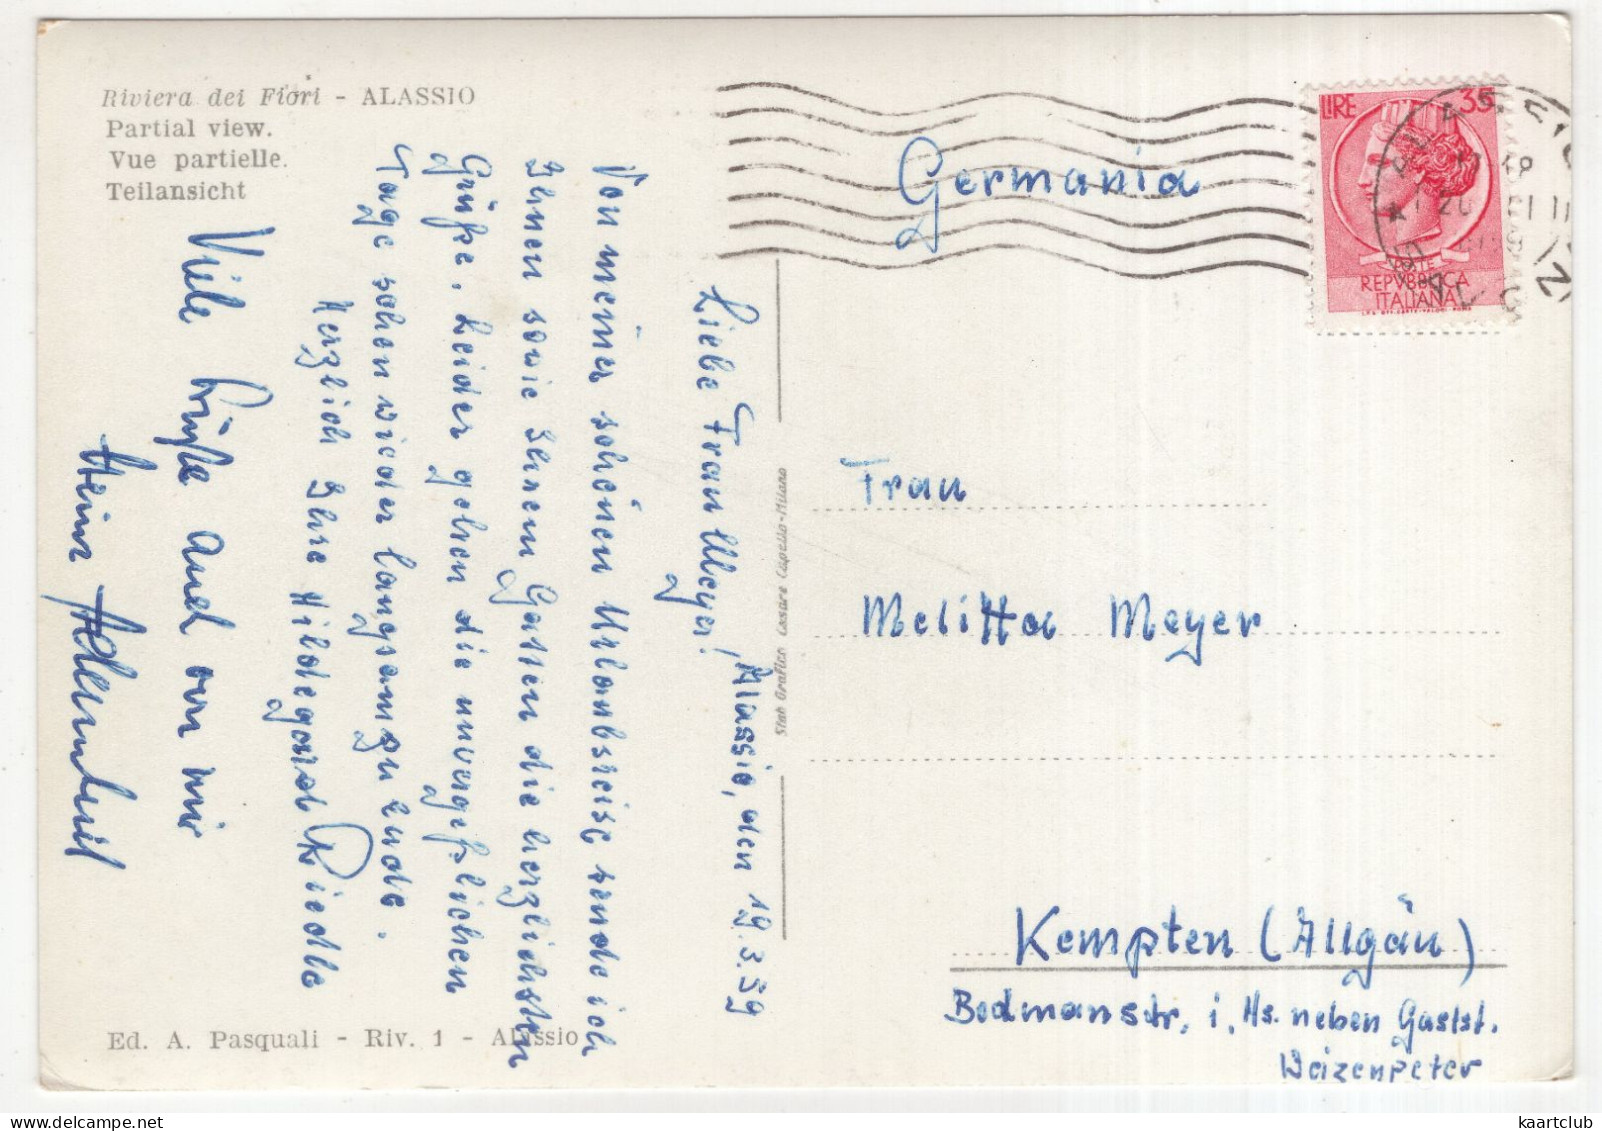 Riviera dei Fiori - ALASSIO
Partial view.
Vue partielle.
Teilansicht
Alassio, den 19.3.59
Liebe Frau Meyer!
Von meiner schönen Urlaubsreise, sende ich
Ihnen sowie Ihrem Gatten die herzlichsten
Grüße. Leider gehen die unvergeßlichen
Tage schon wieder langsam zu ende.
Herzlich Ihre Hildegard Riedle
Viele Grüße auch von mir
Heinz
Ed. A. Pasquali - Riv. 1 - Alassio
Stab Grafico Cesare Capello-Milano
Germania
LIRE 35
POSTE
REPVBBLICA
ITALIANA
Frau
Melitta Meyer
Kempten (Allgäu)
Bodmanstr. i. Hs. neben Gastst.
Weizenpeter
kaartclub